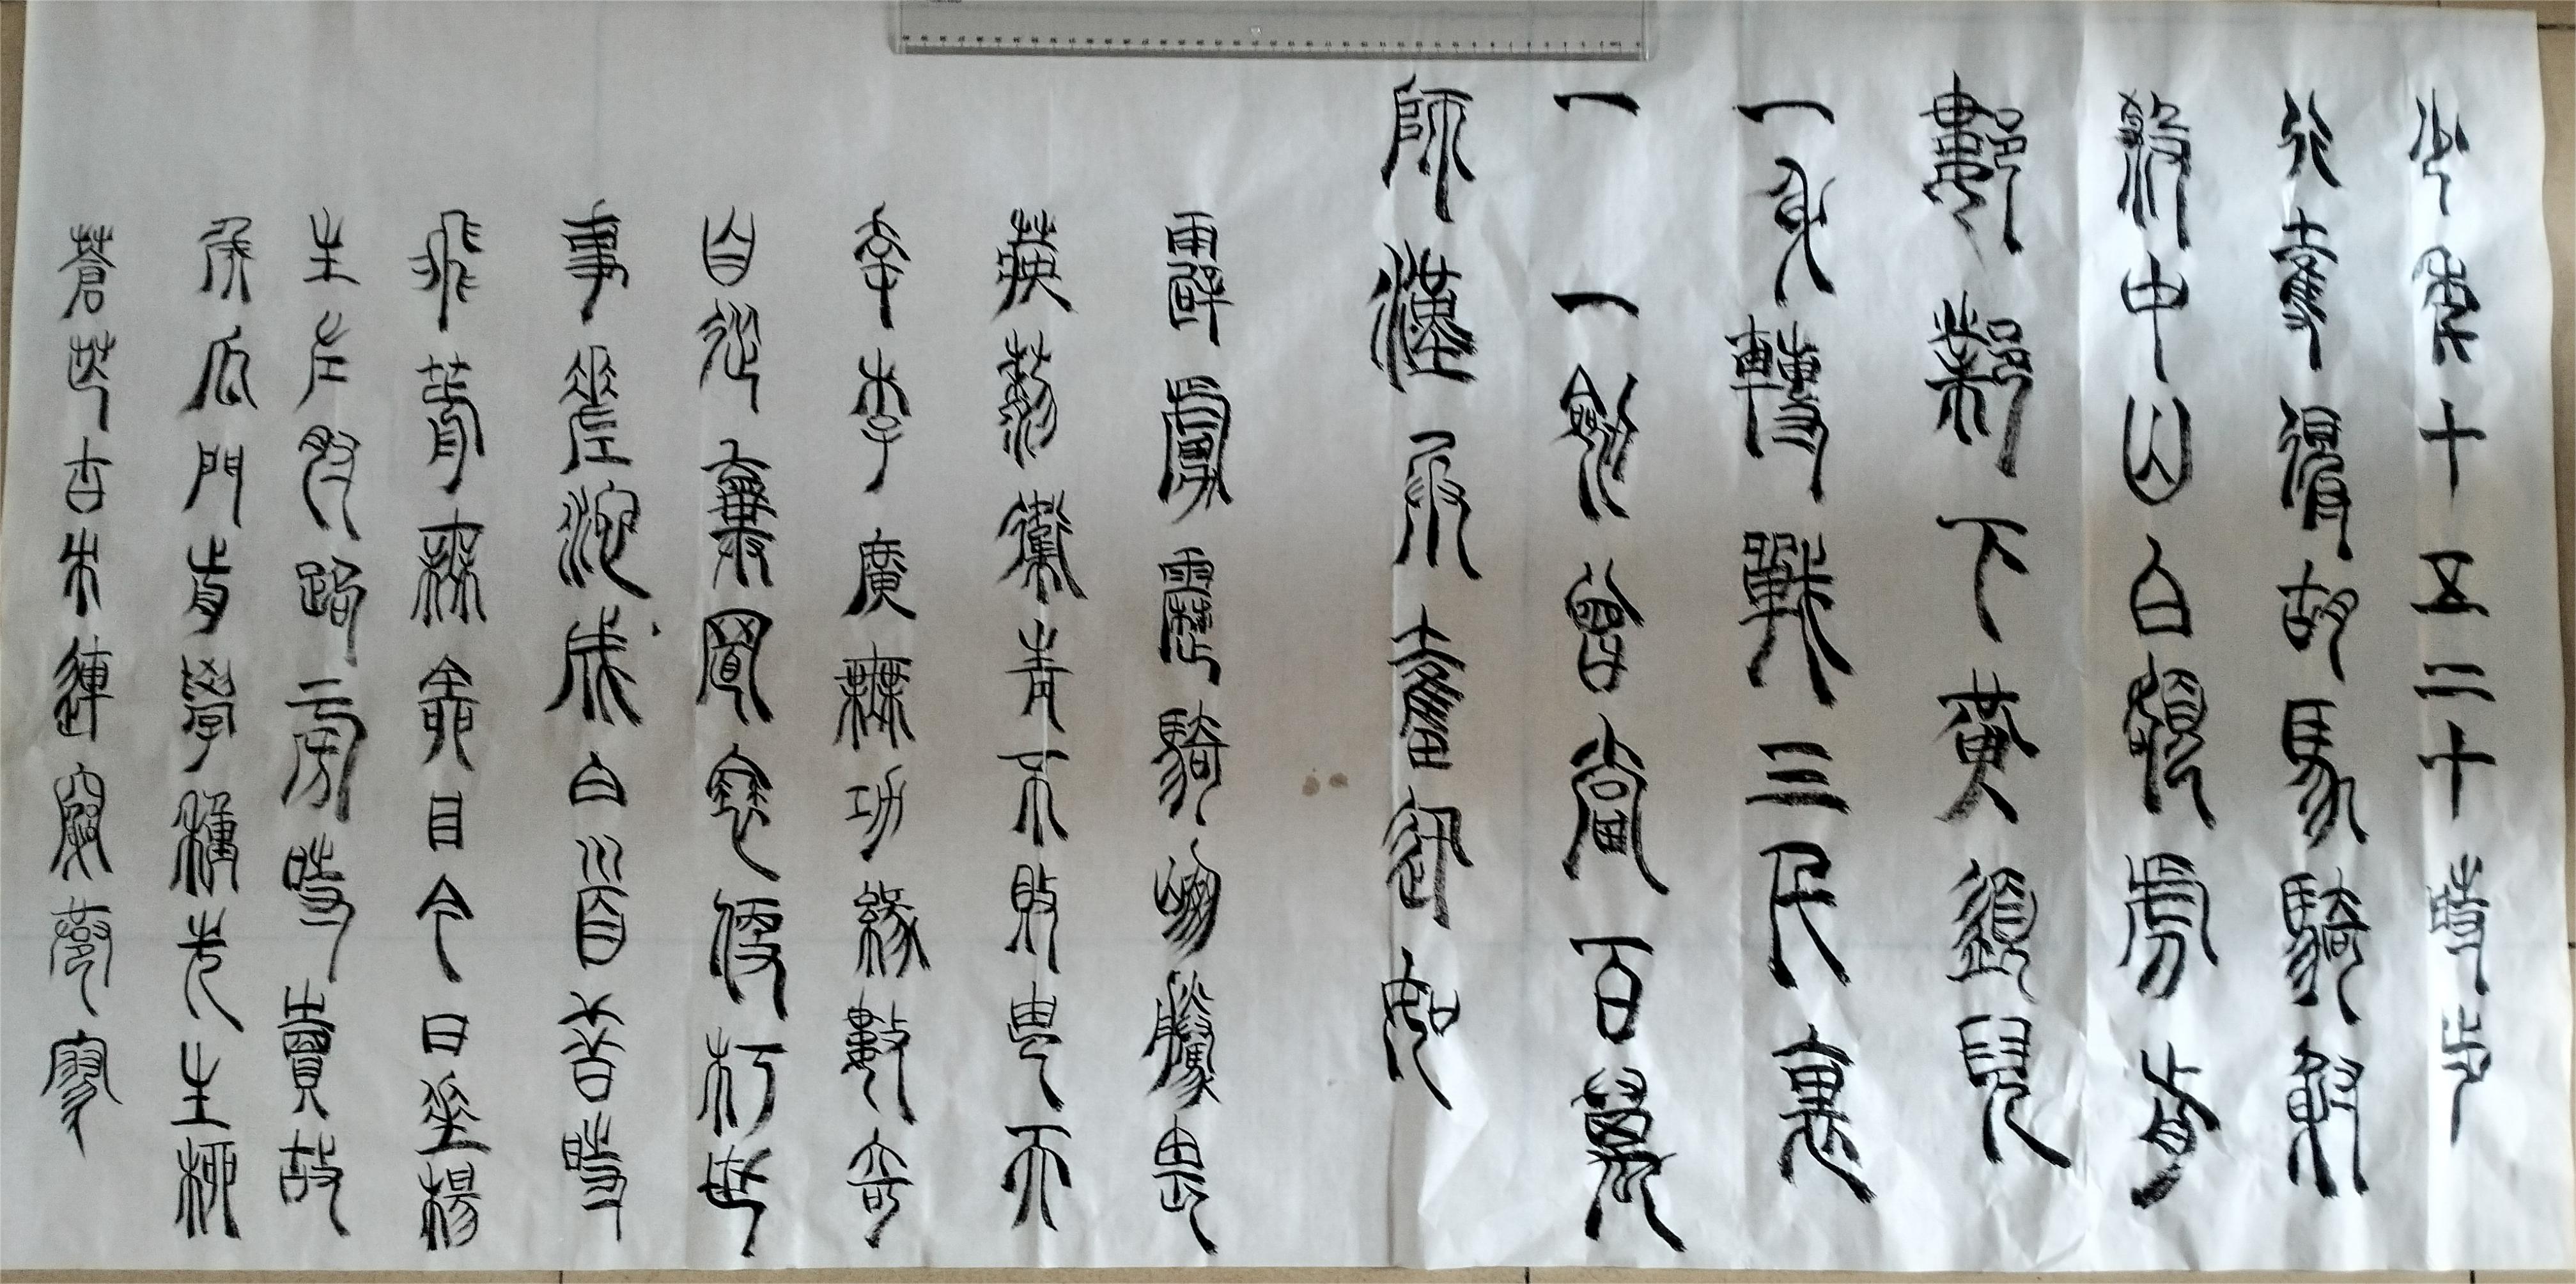 少年十五二十時步
行奪得胡馬騎射
殺中山白額虎肯
數鄴下黃鬚兒
一身轉戰三千裏
一一劍曾當百萬
師漢兵奮迅如
霹虜靂騎崩騰畏
蒺藜衛青不敗由天
幸李廣無功緣數奇
自從棄置衰便朽世
事蹉跎成白首昔時
飛箭無全目今日垂楊
生左肘路旁時賣故
侯瓜門前學種先生柳
蒼茫古木連窮巷寥